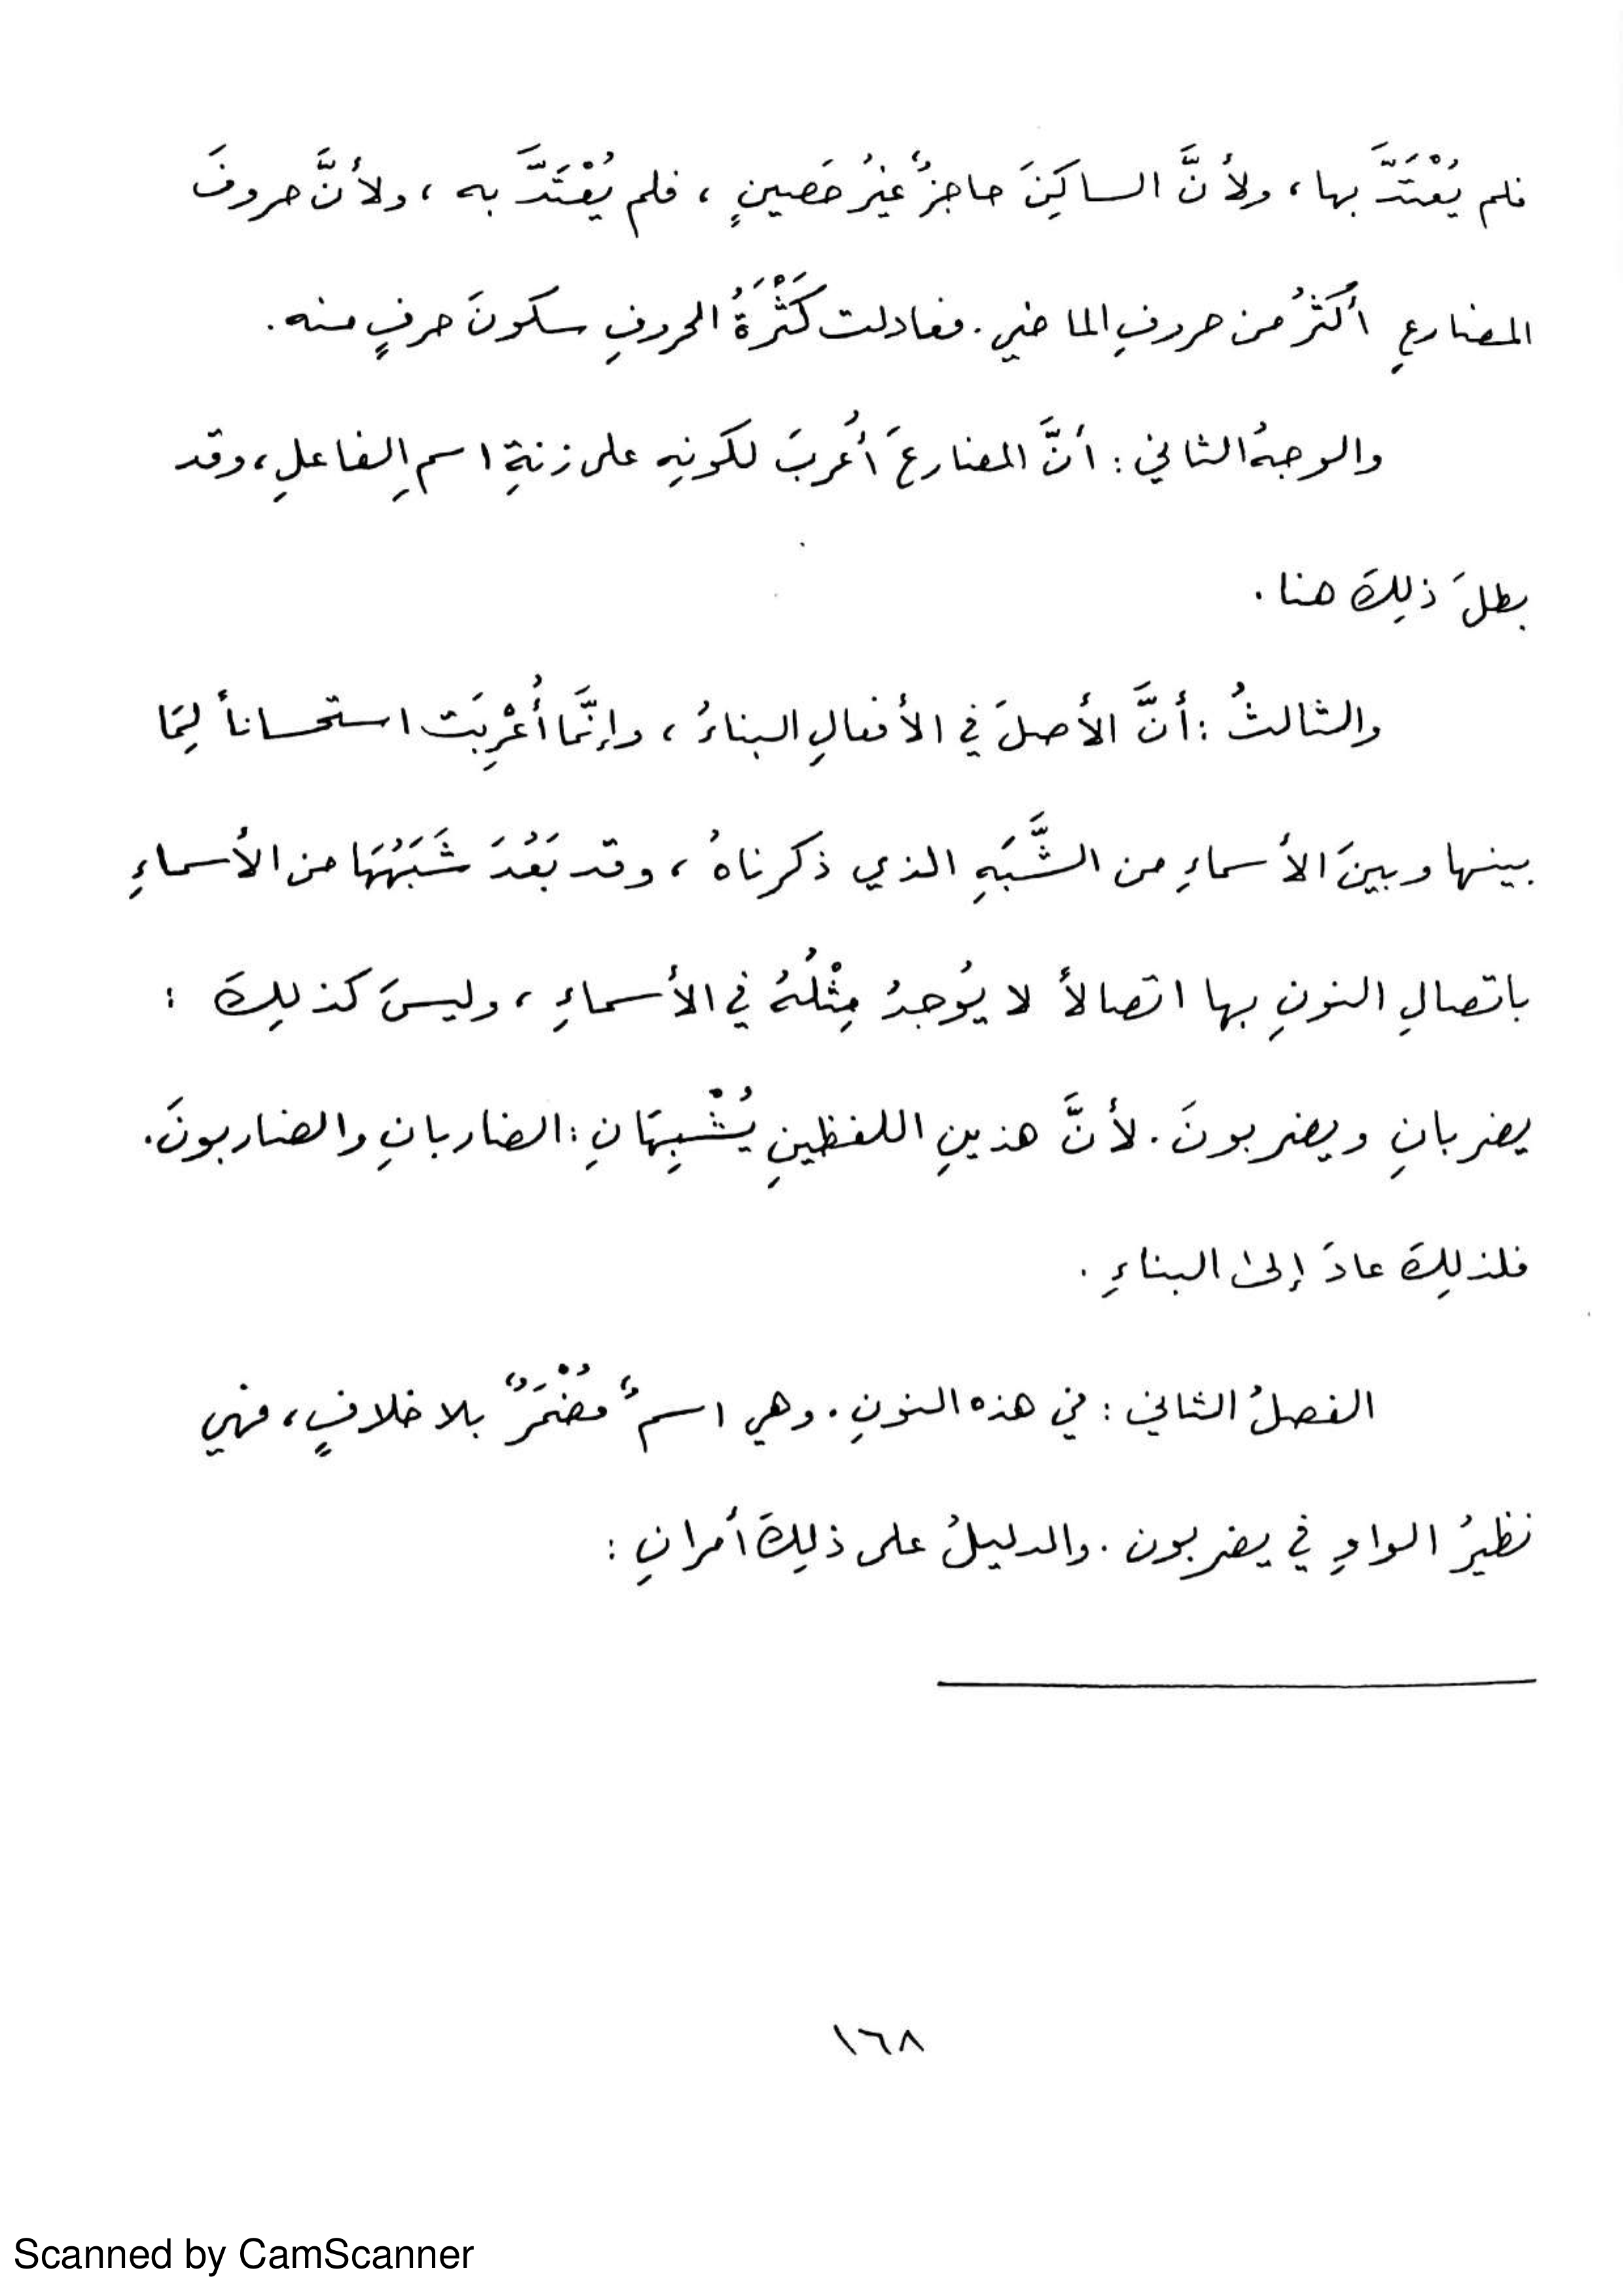 فلم يُعْتَدَّ بها، ولأنَّ الساكِنَ حاجزٌ غيرُ حَصينٍ، فلم يُعْتَدَّ به، ولأنَّ حروفَ
المضارعِ أكثرُ من حروفِ الماضي. فعادلت كَثْرَةُ الحروفِ سكونَ حرفٍ منه.
والوجهُ الثاني: أنَّ المضارعَ أُعربَ لكونِهِ على زنةِ اسمِ الفاعلِ، وقد
بطلَ ذلِكَ هنا.
والثالثُ: أنَّ الأصلَ في الأفعالِ البناءُ، وإنَّمَا أُعْرِبَت استحساناً لِمَا
بينها وبينَ الأسماءِ من الشَّبَهِ الذي ذكرناهُ، وقد بَعُدَ شَبَهُهَا من الأسماءِ
باتصالِ النونِ بها اتصالاً لا يُوجدُ مِثْلُهُ في الأسماءِ، وليسَ كذلِكَ:
يضربانِ ويضربونَ. لأنَّ هذينِ اللفظينِ يُشْبِهَانِ: الضاربانِ والضاربونَ.
فلذلِكَ عادَ إلى البناءِ.
الفصلُ الثاني: في هذه النونِ. وهي اسمٌ مُضْمَرٌ بلا خلافٍ، فهي
نظيرُ الواوِ في يضربون. والدليلُ على ذلِكَ أمرانِ:
١٦٨
Scanned by CamScanner